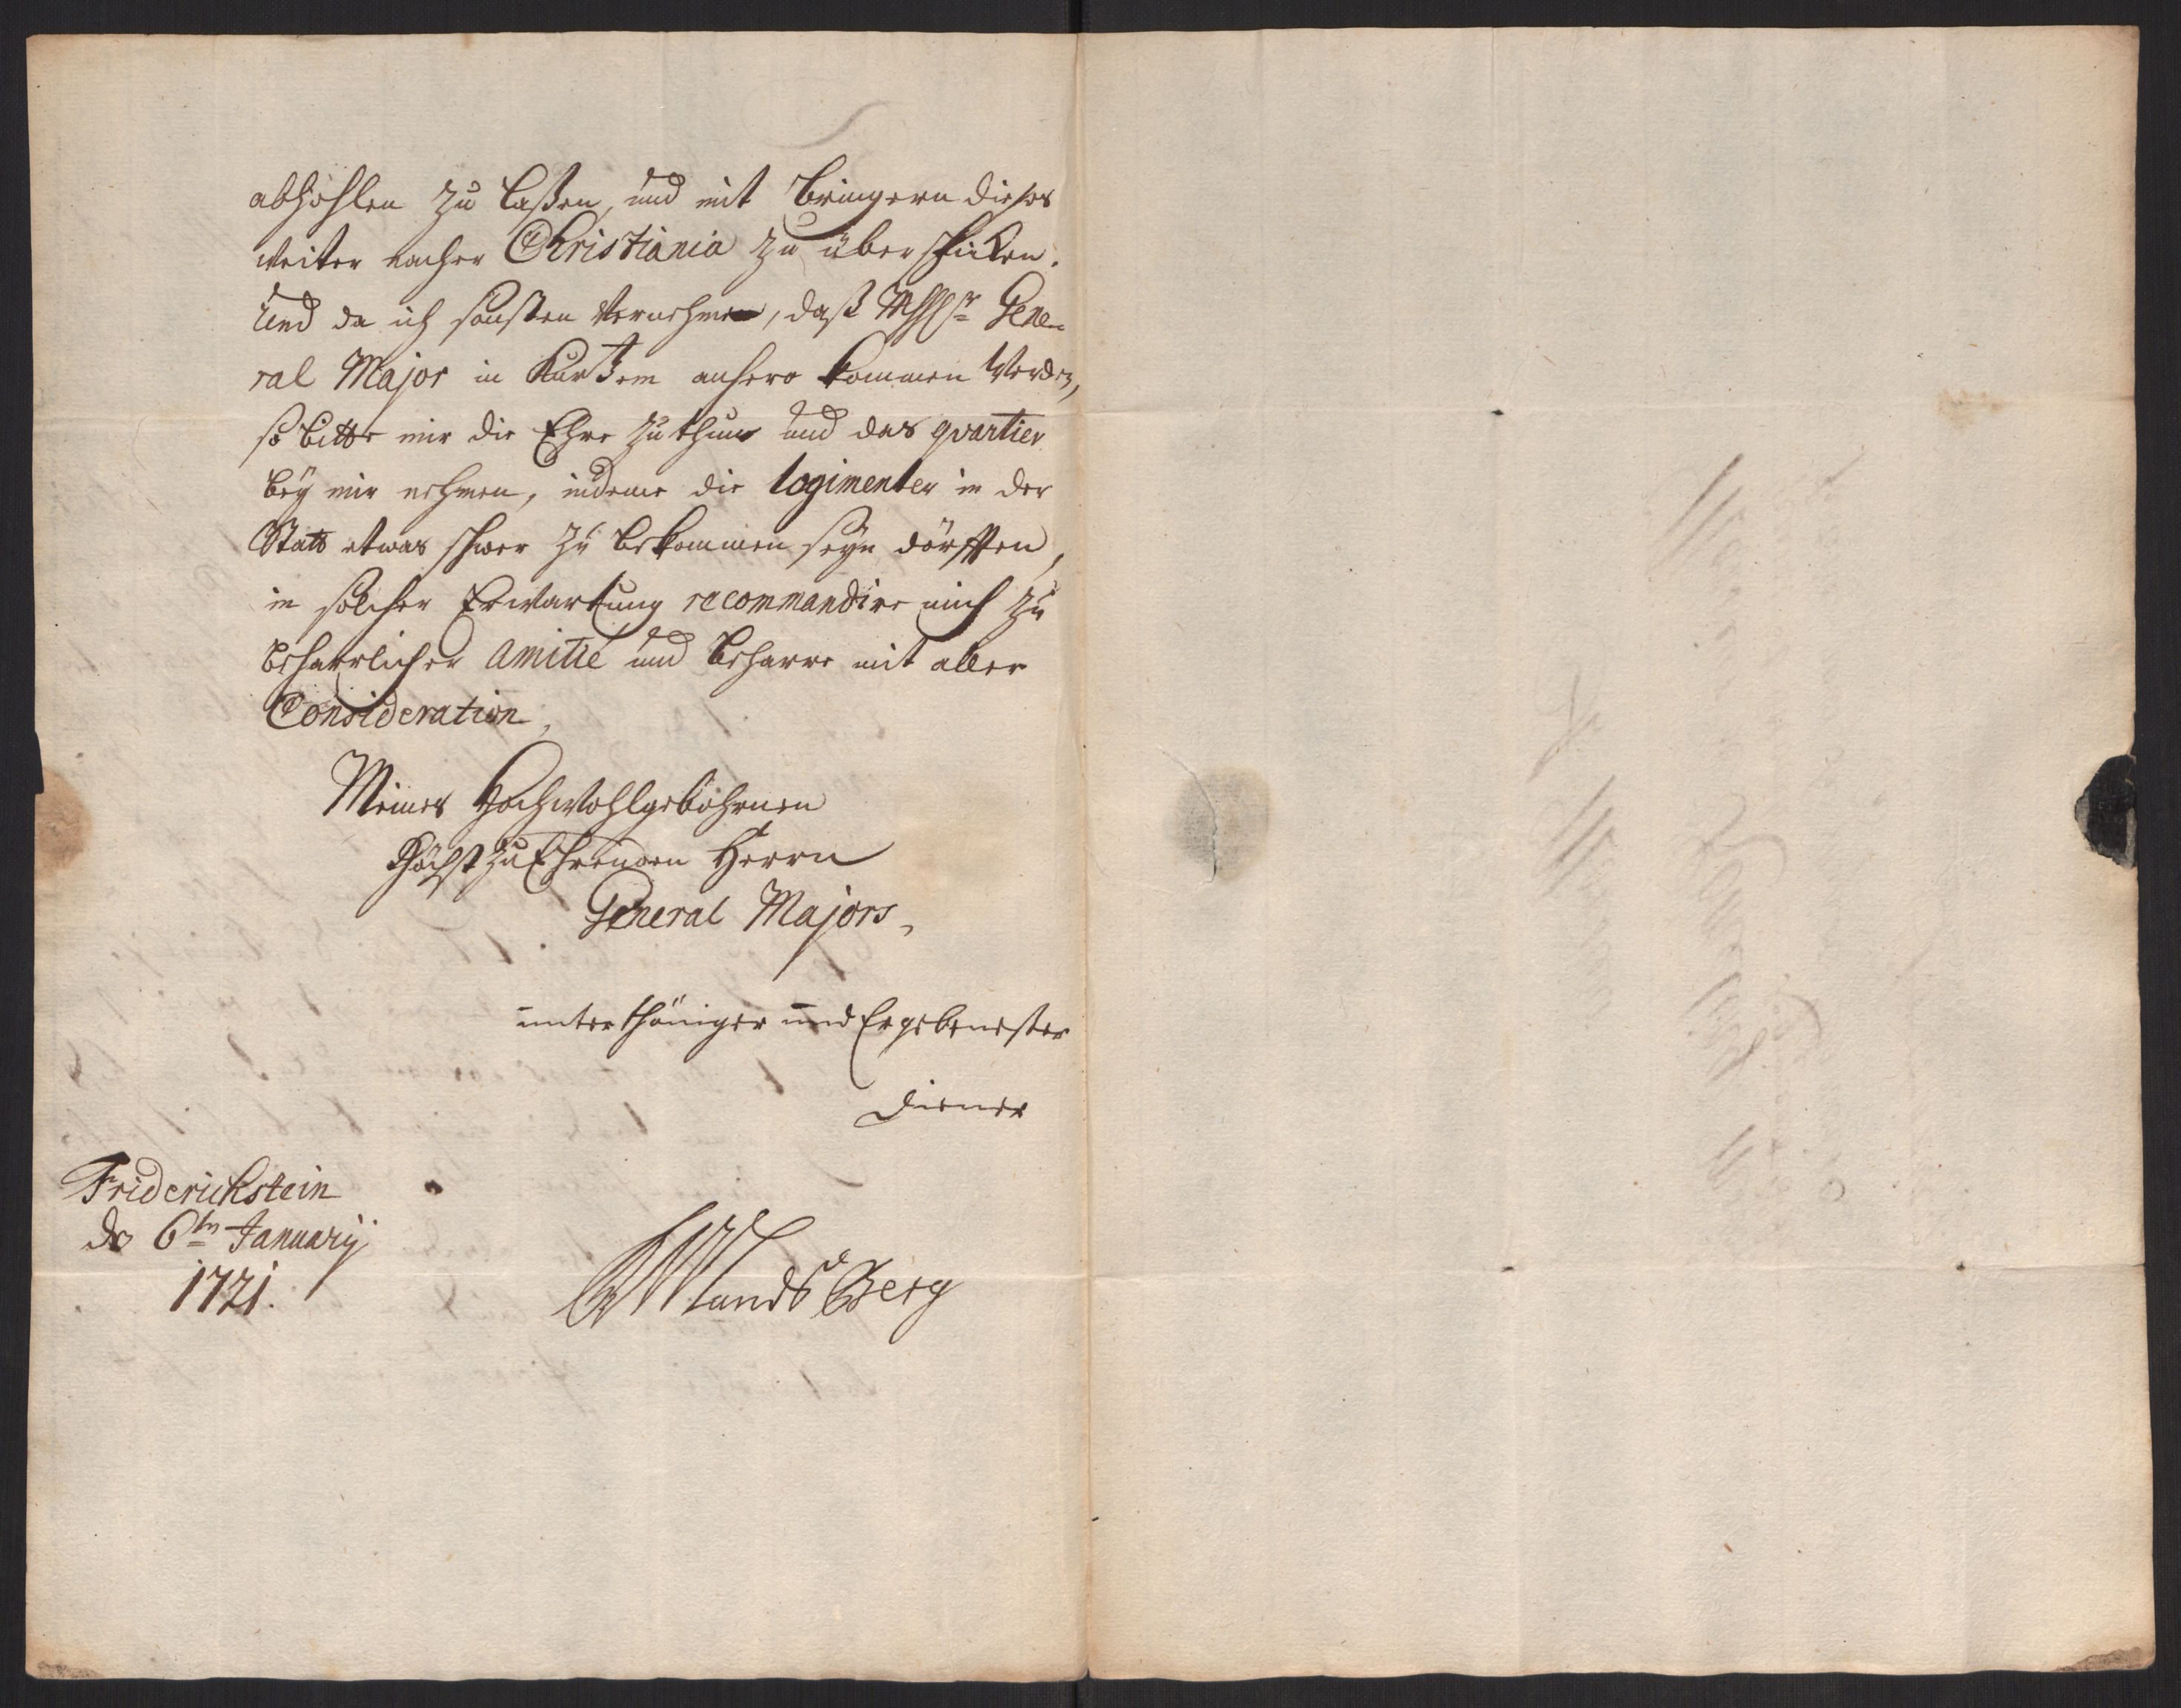 abhohlen zu laßen, und mit bringern dieses
weiter nacher Christiania zu überschicken.
Und da ich sonsten vernehme, daß Gene-
ral Major in Kurtzem anhero kommen werden,
so bitte mir die Ehre zu thun und das qvartier
beÿ mir nehmen, indeme die logimenter in der
Statt etwas schwer zu bekommen seÿn dörfften,
in solcher Erwartung recommandire mich zu
beharrlicher amitié und beharre mit aller
Consideration,
Meines Hochwohlgebohrnen
Höchst zu Ehrenden Herrn
General Majors,
unterthäniger und Ergebenster
Diener
Friderichstein
d. 6tn Januarÿ
1721.
LandsBerg